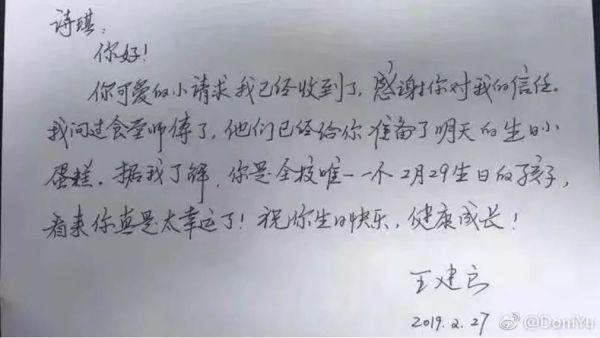 诗琪：
你好！
你可爱的小请求我已经收到了，感谢你对我的信任。
我问过食堂师傅了，他们已经给你准备了明天的生日小
蛋糕。据我了解，你是全校唯一一个2月29生日的孩子，
看来你真是太幸运了！祝你生日快乐，健康成长！
王建良
2019.2.27
@DoniYu